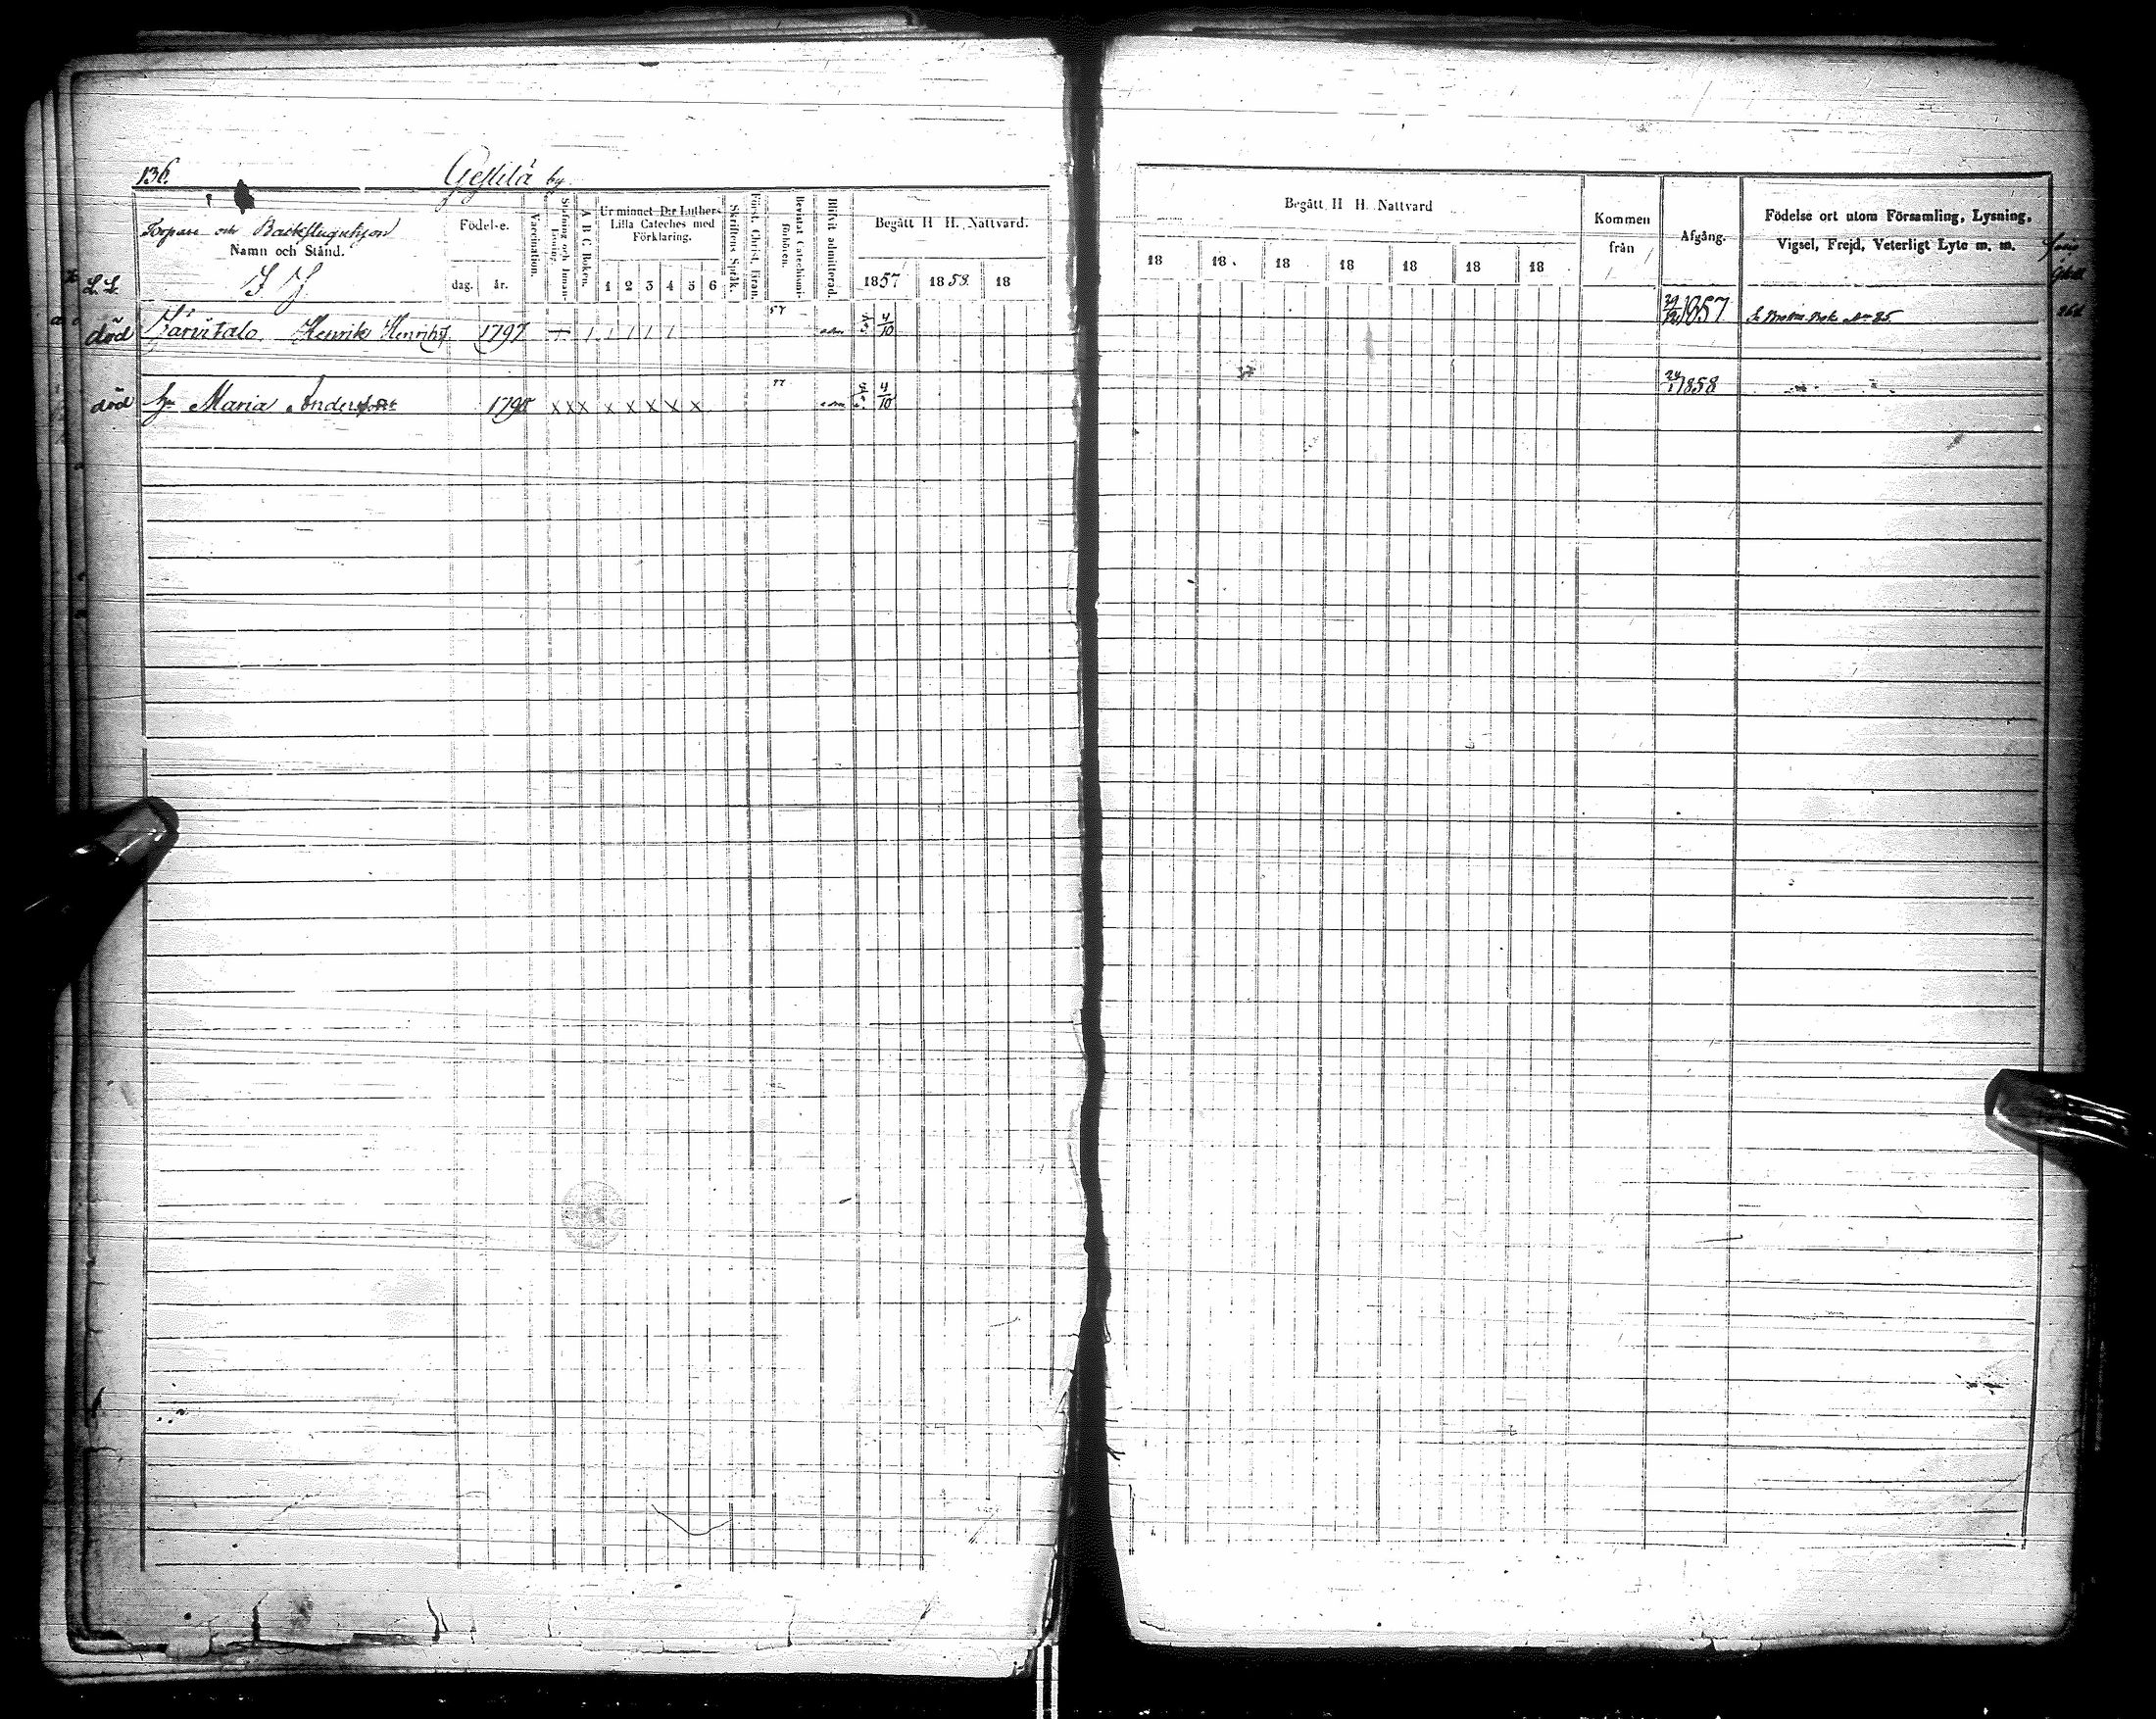 136. Gestilä by
Torpare och Backstuguhjon
Namn och Stånd.
I J
L. L.
Födel-e.
dag. år.
Vaccination.
Stafning och Innan-Läsning.
A B C Boken.
Ur minnet D:r Luthers Lilla Cateches med Förklaring.
1 2 3 4 5 6
Skriftens Språk.
Först. Christ. läran.
Bevistat Catechismi-förhören.
Blifvit admitterad.
Begått H H. Nattvard.
1857 1858. 18
död Järvitalo Henrik Henriks. 1797 57 4/10
död hu Maria Anders 1795 x x x x x x x x 57 4/10
Begått H H. Nattvard
18 18. 18 18 18 18 18
Kommen från
Afgång.
Födelse ort utom Församling, Lysning, Vigsel, Frejd, Veterligt Lyte m. m.
1857
1858